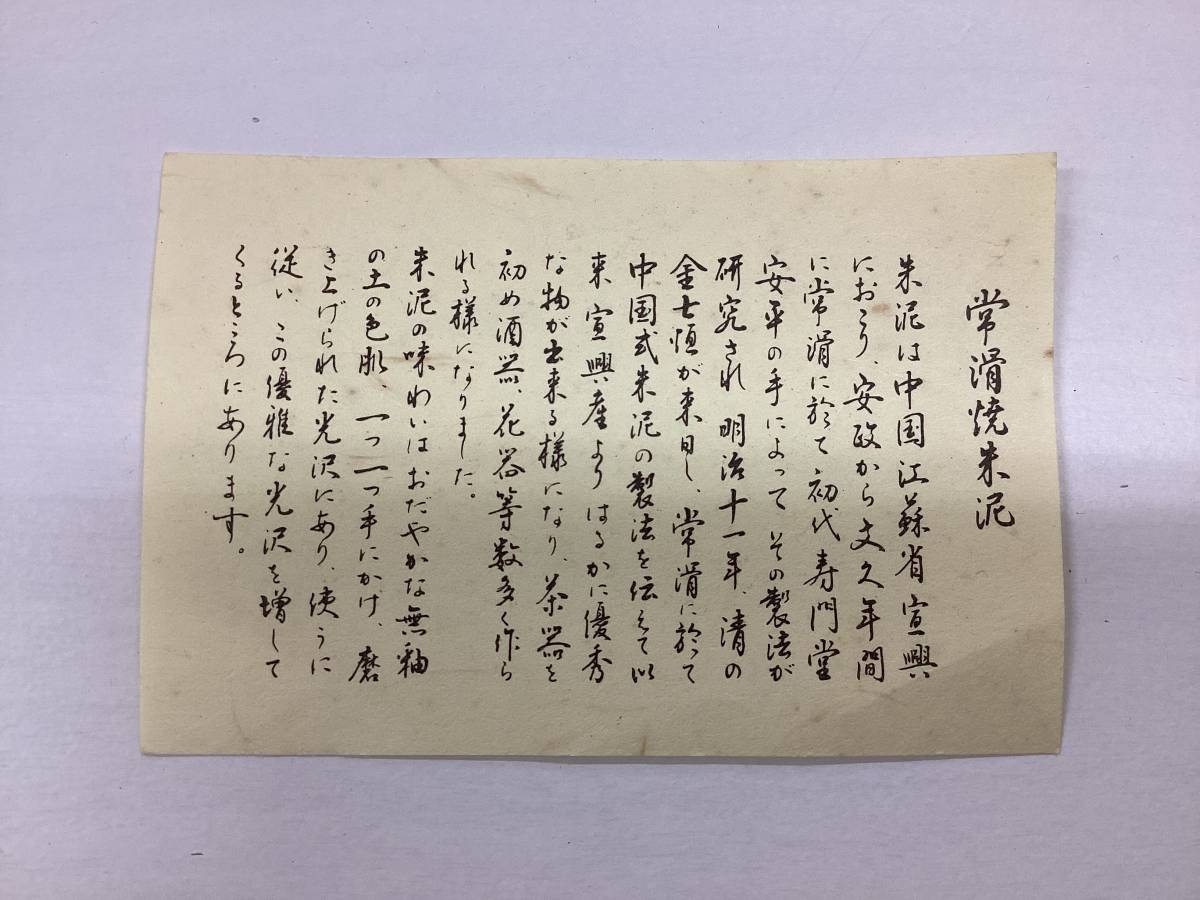 常滑焼朱泥
朱泥は中国江蘇省宣興
におこり、安政から文久年間
に常滑に於て初代寿門堂
安平の手によって その製法が
研究され 明治十一年、清の
金士恒が来日し、常滑に於って
中国式朱泥の製法を伝えて以
来 宣興産より はるかに優秀
な物が出来る様になり、茶器を
初め酒器、花器等数多く作ら
れる様になりました。
朱泥の味わいはおだやかな無釉
の土の色肌、一つ一つ手にかけ、磨
き上げられた光沢にあり、使うに
従い、この優雅な光沢を増して
くるところにあります。